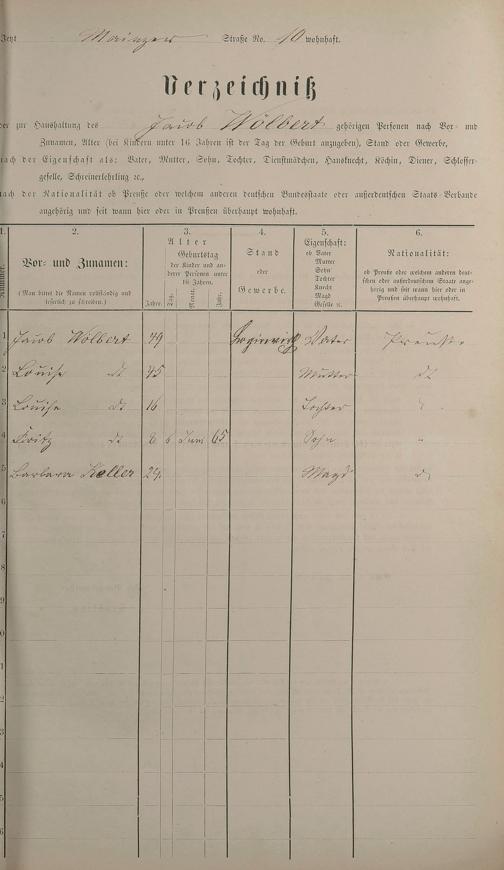 Jetzt Mainzer Straße No. 10 wohnhaft.
Verzeichniß
der zur Haushaltung des Jacob Wölbert gehörigen Personen nach Vor- und
Zunamen, Alter (bei Kindern unter 16 Jahren ist der Tag der Geburt anzugeben), Stand oder Gewerbe,
nach der Eigenschaft als: Vater, Mutter, Sohn, Tochter, Dienstmädchen, Hausknecht, Köchin, Diener, Schlosser-
geselle, Schreinerlehrling ꝛc.,
nach der Nationalität ob Preuße oder welchem anderen deutschen Bundesstaate oder außerdeutschen Staats-Verbande
angehörig und seit wann hier oder in Preußen überhaupt wohnhaft.
1. 2. 3. 4. 5. 6.
Nummer.
Vor- und Zunamen:
(Man bittet die Namen vollständig und
leserlich zu schreiben.)
Alter
Geburtstag
der Kinder und an-
derer Personen unter
16 Jahren.
Jahre. Tag. Monat. Jahr.
Stand
oder
Gewerbe.
Eigenschaft:
ob Vater
Mutter
Sohn
Tochter
Knecht
Magd
Geselle ꝛc.
Nationalität:
ob Preuße oder welchem anderen deut-
schen oder außerdeutschen Staate ange-
hörig und seit wann hier oder in
Preußen überhaupt wohnhaft.
1 Jacob Wölbert 49 Vater Preuße
2 Louise dt 45 Mutter dt
3 Louise dt 16 Tochter
4 Fritz dt 6 6 Juni 65 Sohn "
5 Barbara Keller 24. Magd
6
7
8
9
0
1
2
3
4
5
6